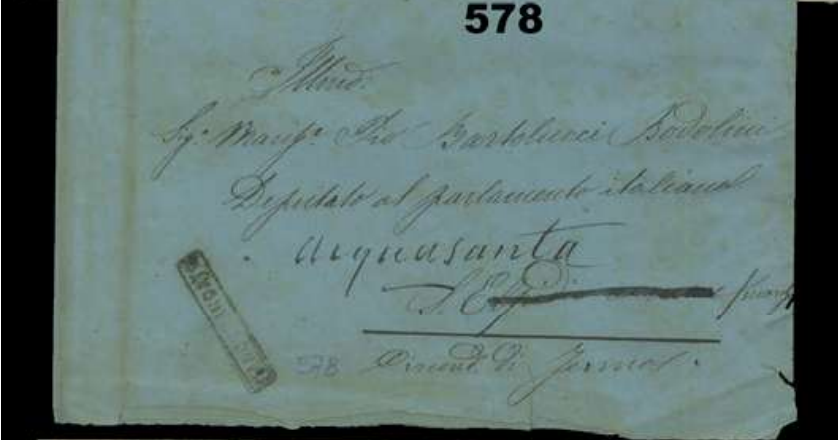 578
Illmo.
Sigr. March. Pio Bartolucci Godolini
Deputato al parlamento italiano
Acquasanta
S. Elpidio
578
Circond. di Fermo.